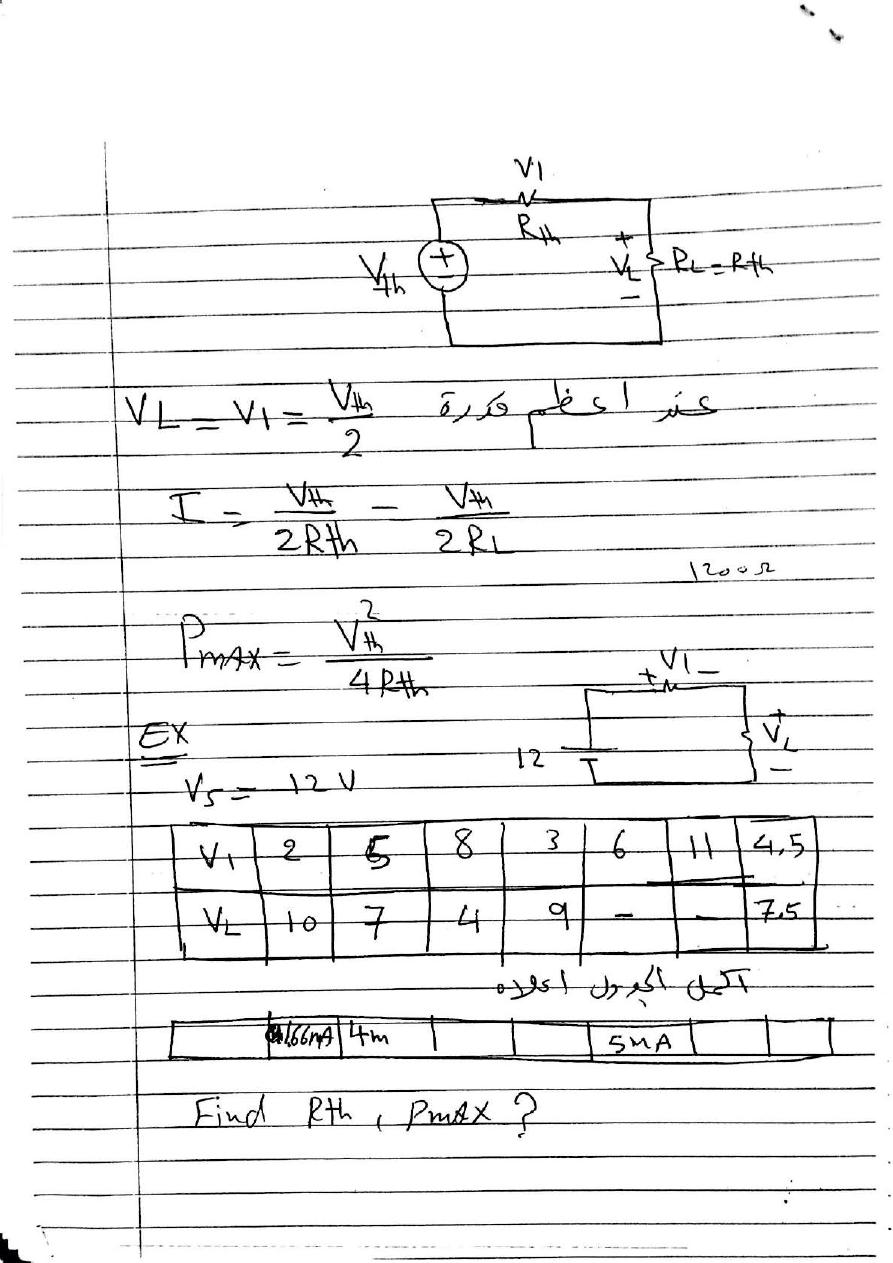 V1
Rth
Vth + - + VL - RL = Rth
VL = V1 = Vth/2 عند اعظم قدرة
I = Vth/2Rth - Vth/2RL
1200Ω
Pmax = Vth²/4Rth
+ V1 -
EX
12 + VL -
Vs = 12 V
V1 2 5 8 3 6 11 4.5
VL 10 7 4 9 - - 7.5
اكمل الجدول اعلاه
1.66mA 4m 5mA
Find Rth, Pmax?